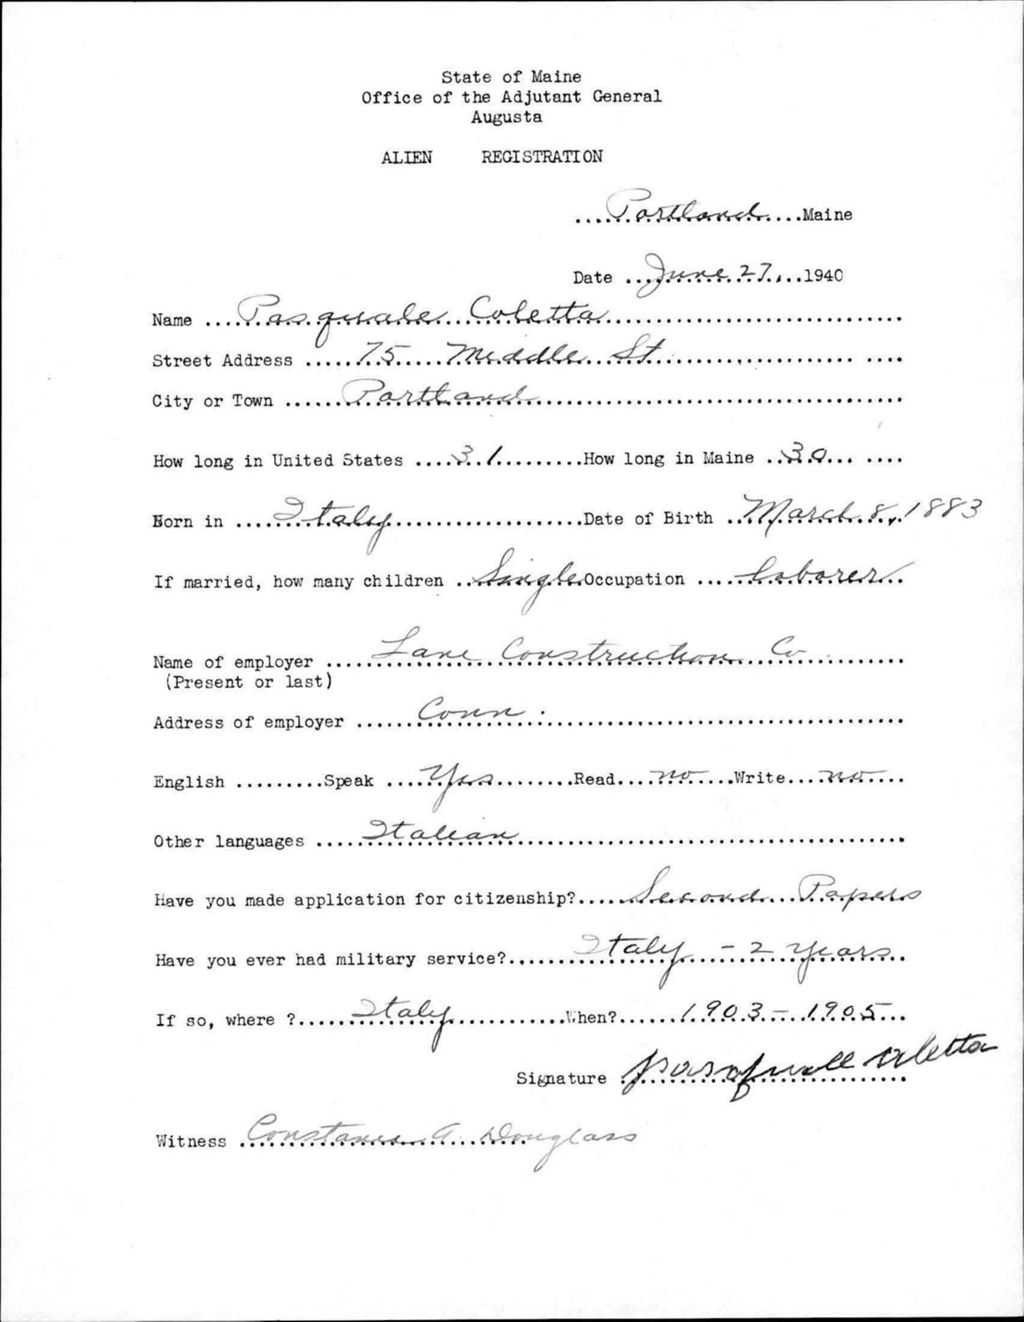 State of Maine
Office of the Adjutant General
Augusta
ALIEN REGISTRATION
....Portland....Maine
Date ...June 27,...1940
Name ....Pasquale Coletta....
Street Address .....75 Middle St.....
City or Town ......Portland......
How long in United States ....31.........How long in Maine ..30... ....
Born in ....Italy....................Date of Birth ..March 8, 1883
If married, how many children ..Single.Occupation ....Laborer..
Name of employer ....Lane Construction Co......
(Present or last)
Address of employer ......Conn.......
English .........Speak ....Yes........Read....no.....Write....no....
Other languages ....Italian....
Have you made application for citizenship?.....Second Papers
Have you ever had military service?.......Italy - 2 years..
If so, where ?.....Italy...........When?......1903 - 1905...
Signature Pasquale Coletta
Witness Constance A. Douglass